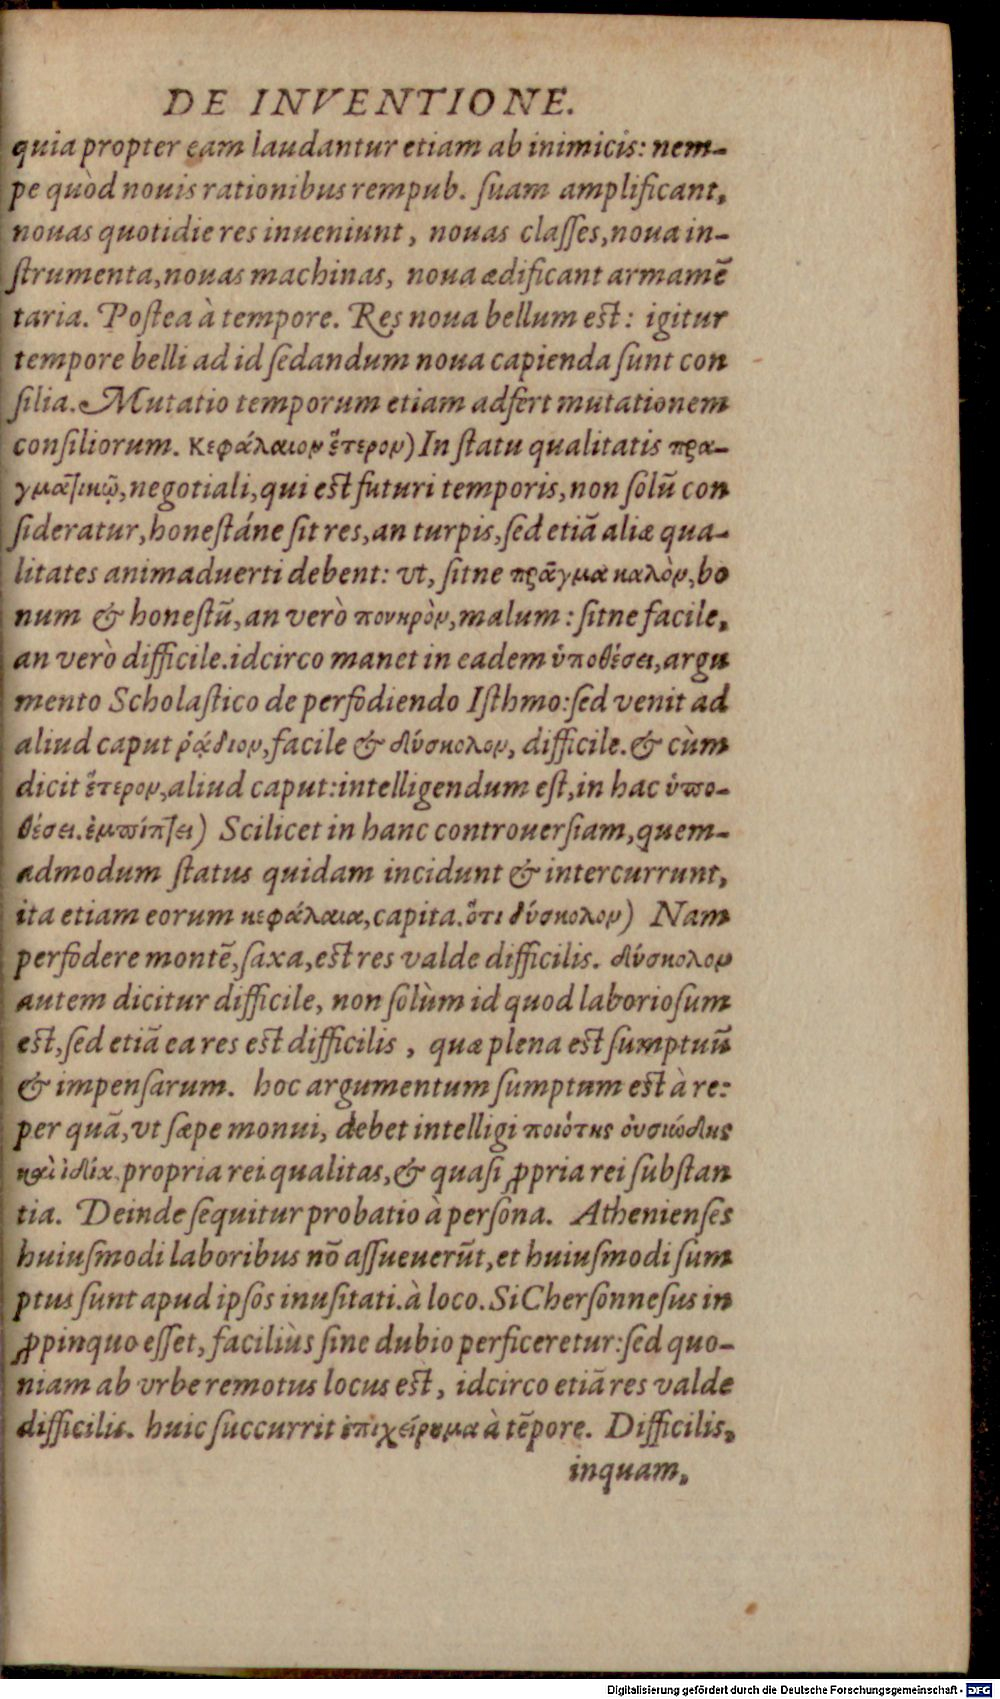 DE INVENTIONE.
quia propter eam laudantur etiam ab inimicis: nem-
pe quòd nouis rationibus rempub. ſuam amplificant,
nouas quotidie res inueniunt, nouas claſſes, noua in-
ſtrumenta, nouas machinas, noua ædificant armamē
taria. Poſtea à tempore. Res noua bellum eſt: igitur
tempore belli ad id ſedandum noua capienda ſunt con
ſilia. Mutatio temporum etiam adfert mutationem
conſiliorum. κεφάλαιον ἕτερον) In ſtatu qualitatis πρα-
γματικῷ, negotiali, qui eſt futuri temporis, non ſolū con
ſideratur, honeſtáne ſit res, an turpis, ſed etiā aliæ qua-
litates animaduerti debent: vt, ſitne πρᾶγμα καλὸν, bo
num & honeſtū, an verò πονηρὸν, malum: ſitne facile,
an verò difficile. idcirco manet in eadem ὑποθέσει, argu
mento Scholaſtico de perfodiendo Iſthmo: ſed venit ad
aliud caput ῥᾴδιον, facile & δύσκολον, difficile. & cùm
dicit ἕτερον, aliud caput: intelligendum eſt, in hac ὑπο-
θέσει. ἐμπίπτει) Scilicet in hanc controuerſiam, quem-
admodum ſtatus quidam incidunt & intercurrunt,
ita etiam eorum κεφάλαια, capita. ὅτι δύσκολον) Nam
perfodere montē, ſaxa, eſt res valde difficilis. δύσκολον
autem dicitur difficile, non ſolùm id quod laborioſum
eſt, ſed etiā ea res eſt difficilis, quæ plena eſt ſumptuū
& impenſarum. hoc argumentum ſumptum eſt à re:
per quā, vt ſæpe monui, debet intelligi ποιότης οὐσιώδης
καὶ ἰδία, propria rei qualitas, & quaſi ꝓpria rei ſubſtan
tia. Deinde ſequitur probatio à perſona. Athenienſes
huiuſmodi laboribus nō aſſueuerūt, et huiuſmodi ſum
ptus ſunt apud ipſos inuſitati. à loco. Si Cherſonneſus in
ꝓpinquo eſſet, faciliùs ſine dubio perficeretur: ſed quo-
niam ab vrbe remotus locus eſt, idcirco etiā res valde
difficilis. huic ſuccurrit ἐπιχείρημα à tēpore. Difficilis,
inquam,
Digitalisierung gefördert durch die Deutsche Forschungsgemeinschaft - DFG